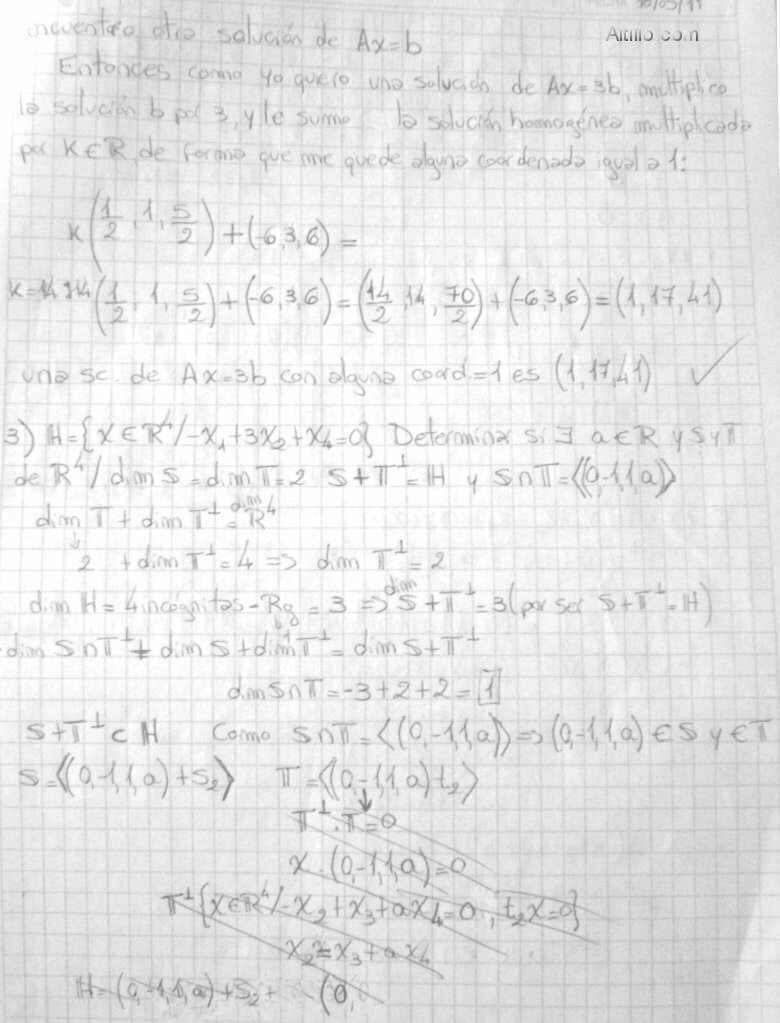 10/05/11
Altillo.com
encuentro otra solución de Ax=b
Entonces como yo quiero una solución de Ax=3b, multiplico
la solución b por 3, y le sumo la solución homogénea multiplicada
por K∈R, de forma que me quede alguna coordenada igual a 1:
K(1/2, 1, 5/2)+(-6,3,6)=
K=14 14(1/2, 1, 5/2)+(-6,3,6)=(14/2, 14, 70/2)+(-6,3,6)=(1,17,41)
una sc. de Ax=3b con alguna coord=1 es (1,17,41) ✓
3) H={X∈R⁴/-X₁+3X₂+X₄=0} Determinar si ∃ a∈R y S y T
de R⁴/dim S=dim T=2 S+T⊥=H y S∩T=<(0,-1,1,a)>
dim T+dim T⊥= dim R⁴
↓
2 +dim T⊥=4 => dim T⊥=2
dim H=4 incógnitas-Rg=3 => dim S+T⊥=3 (por ser S+T⊥=H)
dim S∩T⊥+dim S+dim T⊥=dim S+T⊥
dim S∩T=-3+2+2=1
S+T⊥⊂H Como S∩T=<(0,-1,1,a)>=>(0,-1,1,a)∈S y ∈T
S=<(0,-1,1,a)+S₂> T=<(0,-1,1,a) t₂>
T⊥.T=0
X.(0,-1,1,a)=0
T⊥{X∈R⁴/-X₂+X₃+aX₄=0, t₂X=0}
X₂=X₃+aX₄
H=(0,-1,1,a)+S₂+ (0,